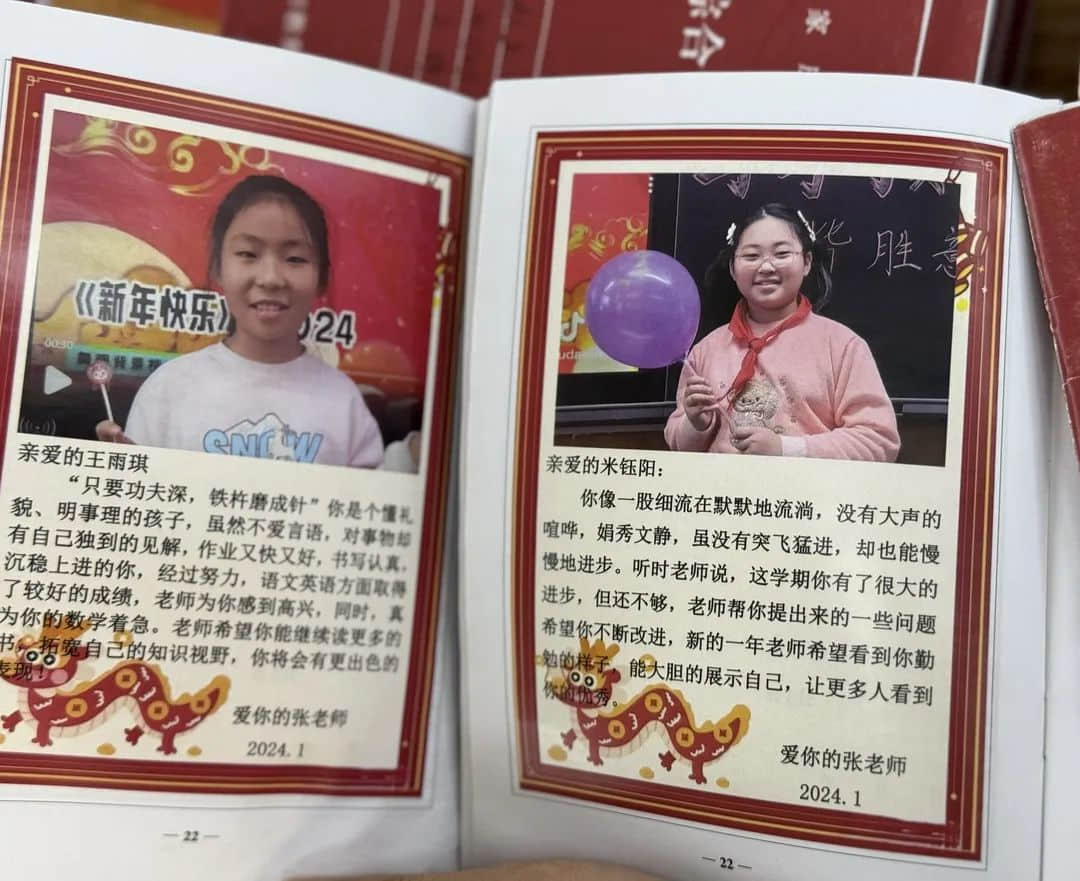 综合
家
《新年快乐》2024
00:30
SNOW
亲爱的王雨琪
“只要功夫深，铁杵磨成针”你是个懂礼
貌、明事理的孩子，虽然不爱言语，对事物却
有自己独到的见解，作业又快又好，书写认真，
沉稳上进的你，经过努力，语文英语方面取得
了较好的成绩，老师为你感到高兴，同时，真
为你的数学着急。老师希望你能继续读更多的
书，拓宽自己的知识视野，你将会有更出色的
表现！
爱你的张老师
2024.1
— 22 —
胜意
亲爱的米钰阳：
你像一股细流在默默地流淌，没有大声的
喧哗，娟秀文静，虽没有突飞猛进，却也能慢
慢地进步。听时老师说，这学期你有了很大的
进步，但还不够，老师帮你提出来的一些问题
希望你不断改进，新的一年老师希望看到你勤
勉的样子，能大胆的展示自己，让更多人看到
你的优秀。
爱你的张老师
2024.1
— 22 —